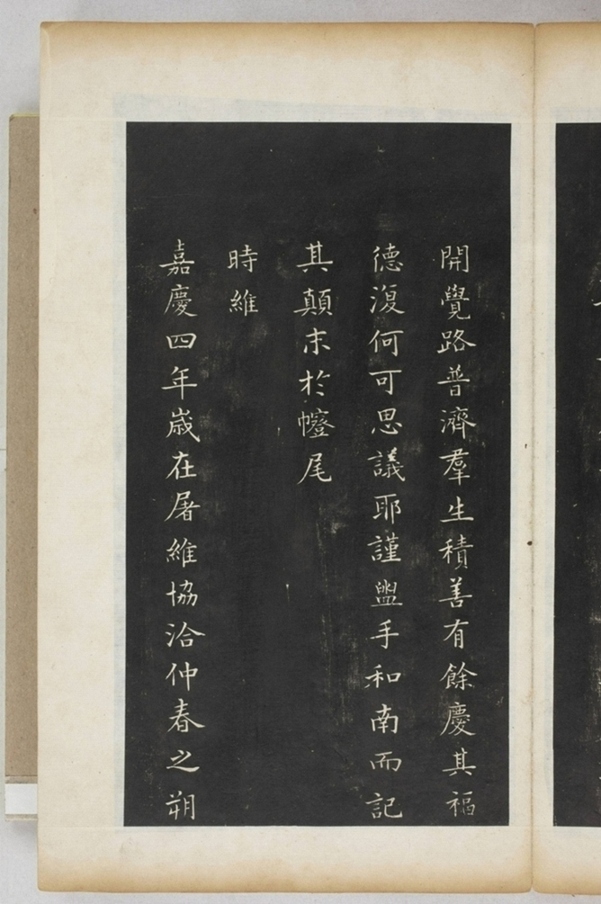 開覺路普濟羣生積善有餘慶其福
德復何可思議耶謹盥手和南而記
其顛末於幰尾
時維
嘉慶四年歲在屠維協洽仲春之朔